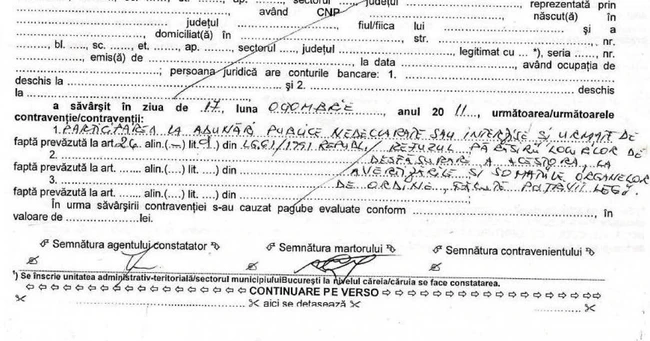 ....................., bl. ......, sc. ...., et. ...., ap. ......, sectorul ......, județul ....................., reprezentată prin
..............................................., având CNP .....................................................,
..............................., județul ....................., fiul/fiica lui ..................... și a născut(ă) în
....................., domiciliat(ă) în ....................., str. ....................., nr.
......, bl. ...., sc. ...., et. ...., ap. ......, sectorul ....., județul ....................., legitimat cu ... *), seria ......, nr.
....................., emis(ă) de ....................., la data ....................., având ocupația de
.....................; persoana juridică are conturile bancare: 1. .....................
deschis la ..................... și 2. .....................
la .....................
a săvârșit în ziua de 17, luna OCTOMBRIE, anul 2011, următoarea/următoarele
contravenție/contravenții:
1. PARTICIPAREA LA ADUNĂRI PUBLICE NEDECLARATE SAU INTERZISE ȘI URMATĂ DE
faptă prevăzută la art. 26 alin.(—) lit. d din L60/1991 REPUBL, REFUZUL PĂRĂSIRII LOCURILOR DE
2. DESFĂȘURARE A ACESTORA, LA
faptă prevăzută la art. ....... alin.(....) lit.() din AVERTIZĂRILE ȘI SOMAȚIILE ORGANELOR
3. DE ORDINE, FĂCUTE POTRIVIT LEGII.
faptă prevăzută la art. ....... alin.(....) lit.() din
În urma săvârșirii contravenției s-au cauzat pagube evaluate conform ....................., în
valoare de ............lei.
Semnătura agentului constatator Semnătura martorului Semnătura contravenientului
*) Se înscrie unitatea administrativ-teritorială/sectorul municipiuluiBucurești la nivelul căreia/căruia se face constatarea.
CONTINUARE PE VERSO
aici se detașează